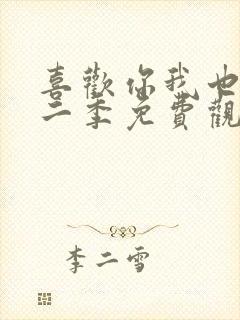 喜歡你我也
二季免費觀
李二雪